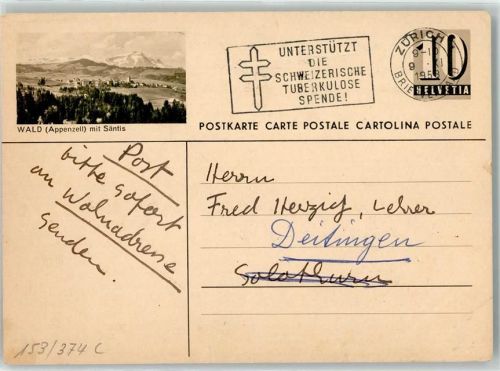 WALD (Appenzell) mit Säntis
UNTERSTÜTZT
DIE
SCHWEIZERISCHE
TUBERKULOSE
SPENDE!
ZÜRICH
1953
BRIEF
10
HELVETIA
POSTKARTE CARTE POSTALE CARTOLINA POSTALE
Post
bitte sofort
an Wohnadresse
senden.
Herrn
Fred Herzig, Lehrer
Deitingen
Solothurn
153/374 C